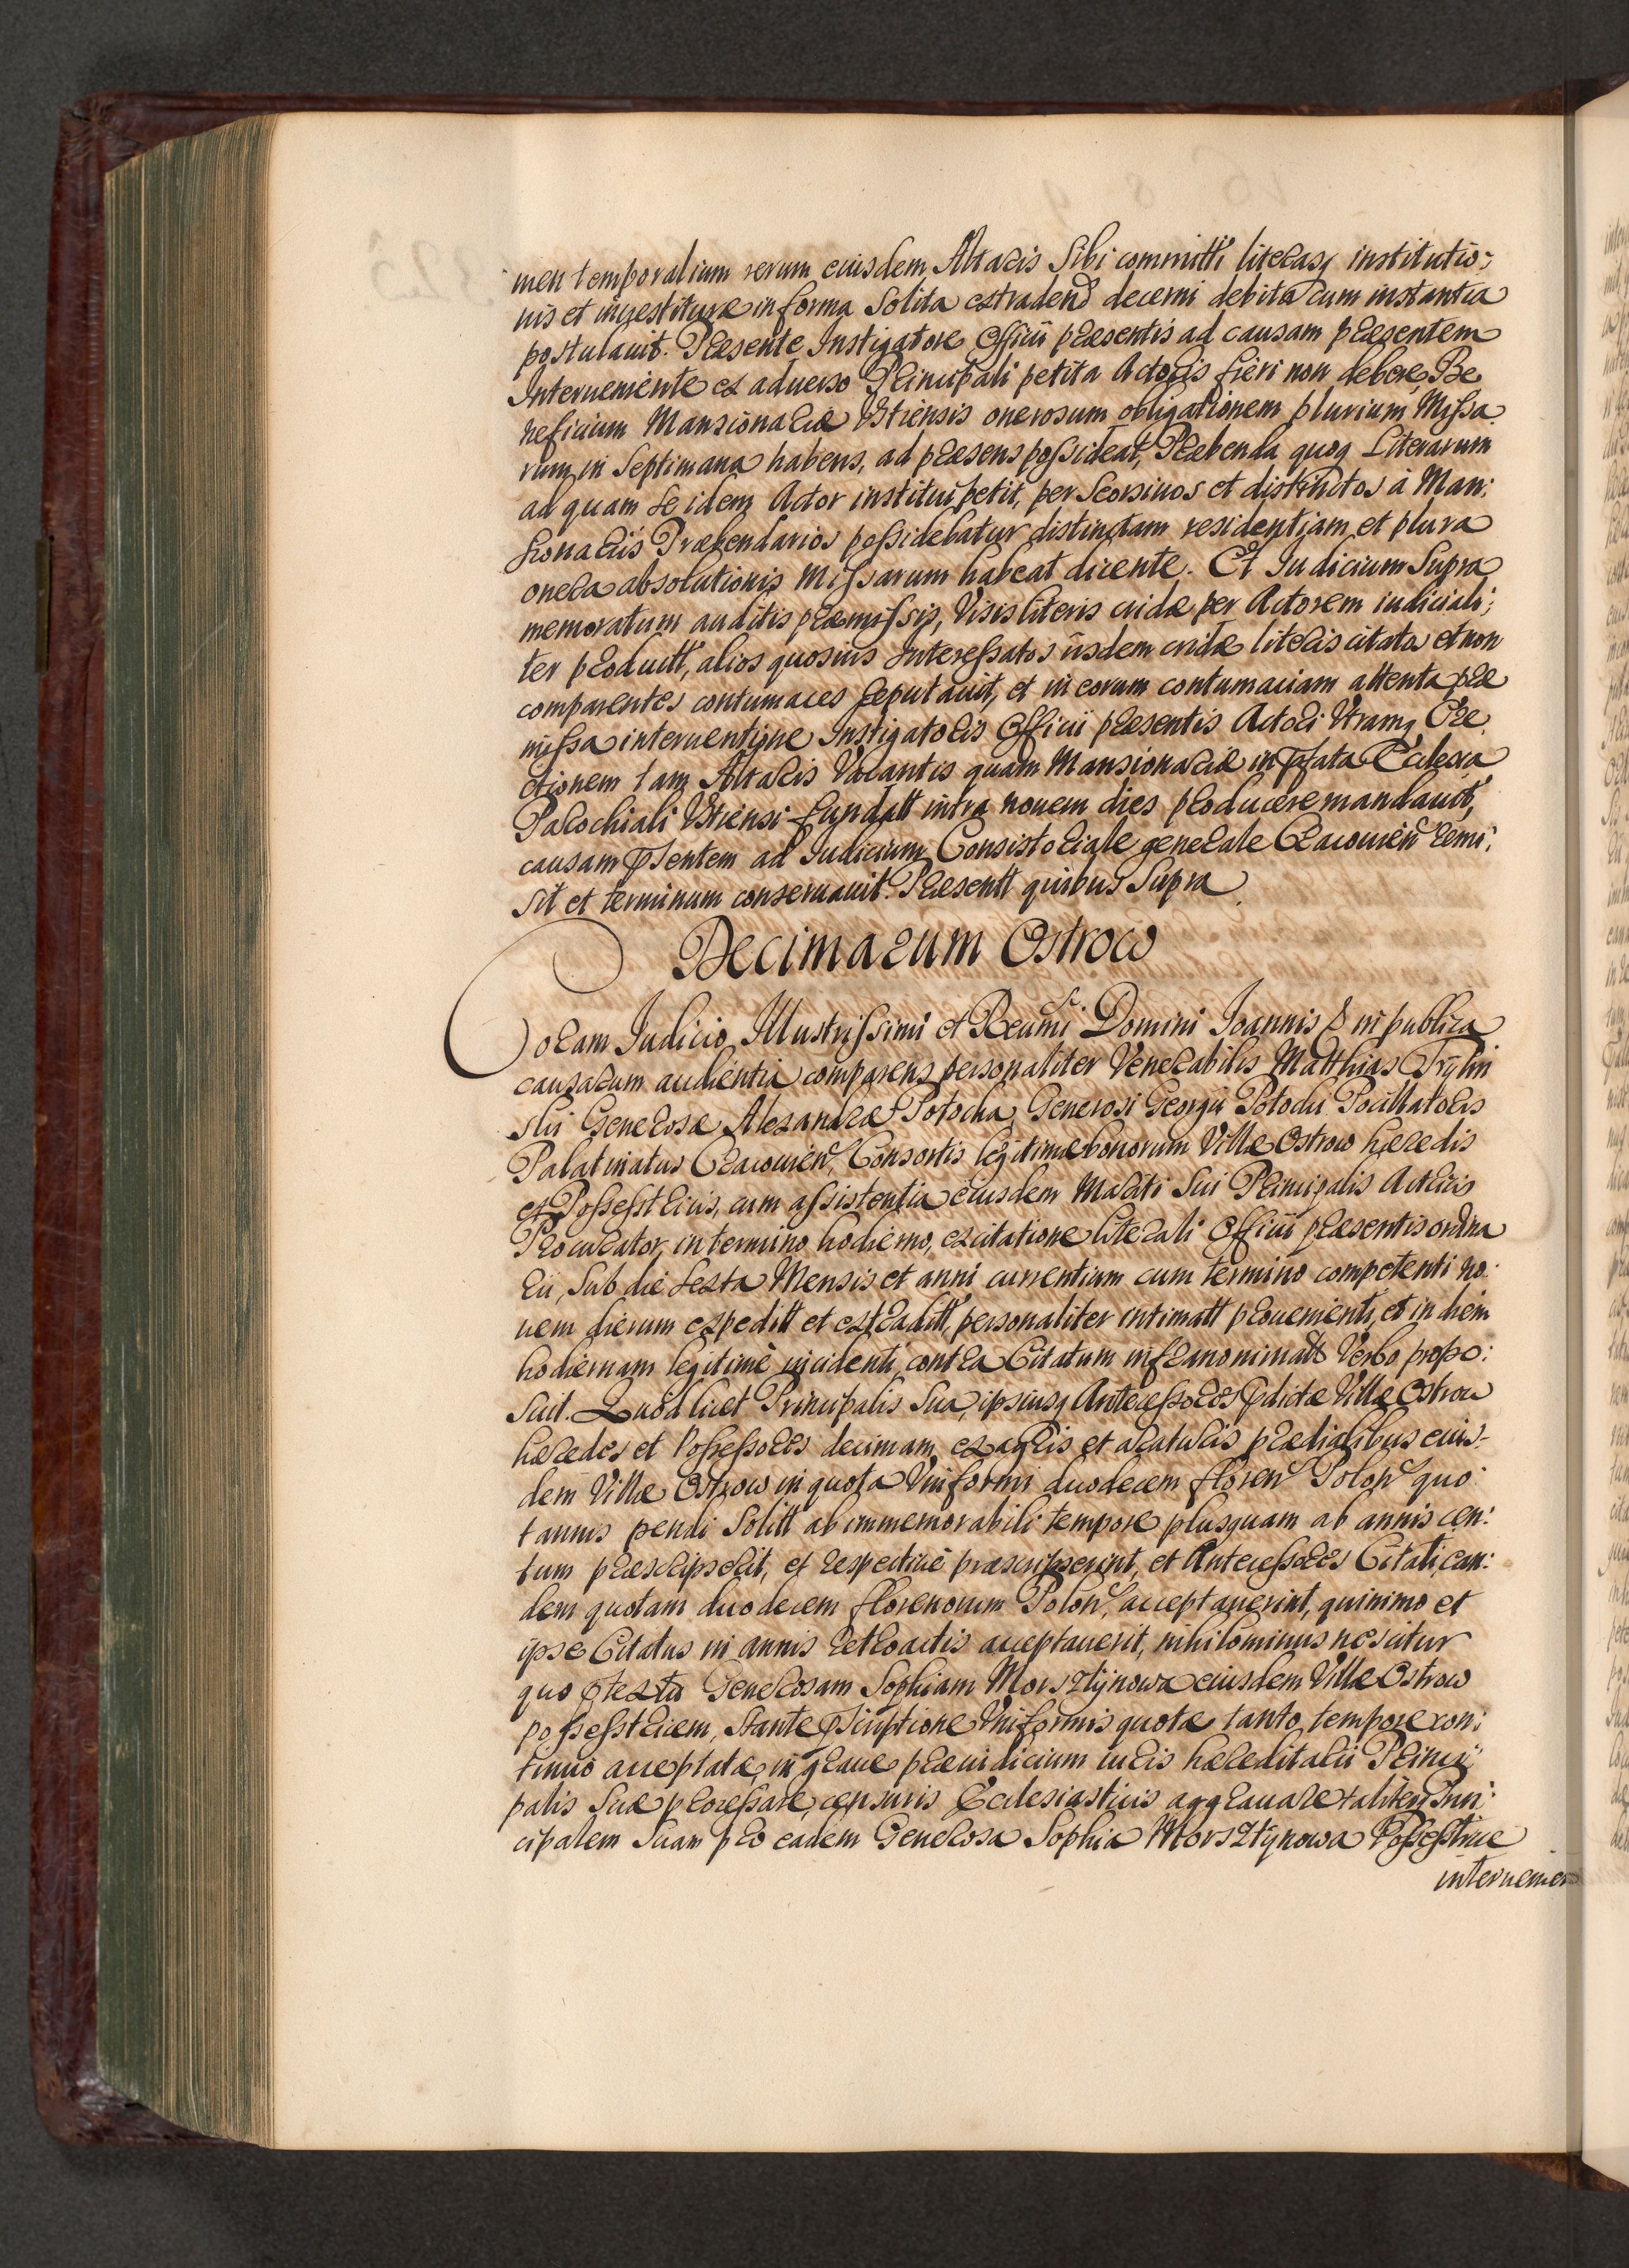 men temporalium rerum eiusdem Altaris Sibi committi literasq institutio:
nis et inuestituræ in forma Solita extradend decerni debita cum instantia
postulauit. Præsente Instigatore Officii præsentis ad causam præsentem
Interueniente ex aduerso Principali petita Actoris fieri non debere, Be
neficium Mansionariæ Vstiensis onerosum obligationem plurium Missa
rum in Septimana habens, ad præsens possideat, Præbenda quoq Literarum
ad quam se idem Actor institui petit, per Seorsiuos et distinctos à Man:
sionariis Præbendarios possidebatur distinctam residentiam et plura
onera absolutionis Missarum habeat dicente. Et Iudicium Supra
memoratum auditis præmissis, Visis literis cridæ per Actorem iudiciali:
ter productt, alios quosuis Interessatos iisdem cridæ literis citatos et non
comparentes contumaces reputauit, et in eorum contumaciam attenta præ
missa interuentione Instigatoris Officii præsentis Actori Vtramq Ere
ctionem tam Altaris Vacantis quam Mansionariæ in pfata Ecclesia
Parochiali Vstiensi fundatt intra nouem dies producere mandauit,
causam psentem ad Iudicium Consistoriale generale Cracouien remi:
sit et terminum conseruauit. Præsentt quibus Supra.
Decimarum Ostrow
Coram Iudicio Illustrissimi et Reudmi Domini Ioannis &c in publica
causarum audientia comparens personaliter Venerabilis Matthias Trylin
ski Generosæ Alexandræ Potocka, Generosi Georgii Potocki Pocillatoris
Palatinatus Cracouien, Consortis legitimæ bonorum Villæ Ostrow hæredis
et Possesstricis, cum assistentia eiusdem Mariti Sui Principalis Actricis
Procurator, in termino hodierno, ex citatione literali Officii præsentis ordna
rii, Sub die sexta Mensis et anni currentium cum termino competenti no:
uem dierum expeditt et extraditt, personaliter intimatt prouenienti, et in diem
hodiernam legitimè incidenti, contra Citatum infranominatt Verbo propo:
suit. Quod licet Principalis Sua, ipsiusq Antecessores pdictæ Villæ Ostrow
hæredes et Possessores decimam ex agris et araturis prædialibus eius-
dem Villæ Ostrow in quota Vniformi duodecem floren Polon quo
tannis pendi Solitt ab immemorabili tempore plusquam ab annis cen:
tum præscripserit, et respectiuè præscripserint, et Antecessores Citati, ean:
dem quotam duodecem florenorum Polon, acceptauerint, quinimo et
ipse Citatus in annis retroactis acceptauerit, nihilominus nescitur
quo ptextu Generosam Sophiam Morsztynowa eiusdem Villæ Ostrow
possesstricem, stante pscriptione Vniformis quotæ tanto tempore con:
tinuo acceptatæ, in graue præiudicium iuris hæreditarii Princi
palis Suæ processare, censuris Ecclesiasticis aggrauare, taliterq Prin:
cipalem Suam pro eadem Generosa Sophia Morsztynowa Possesstrice
interuenien